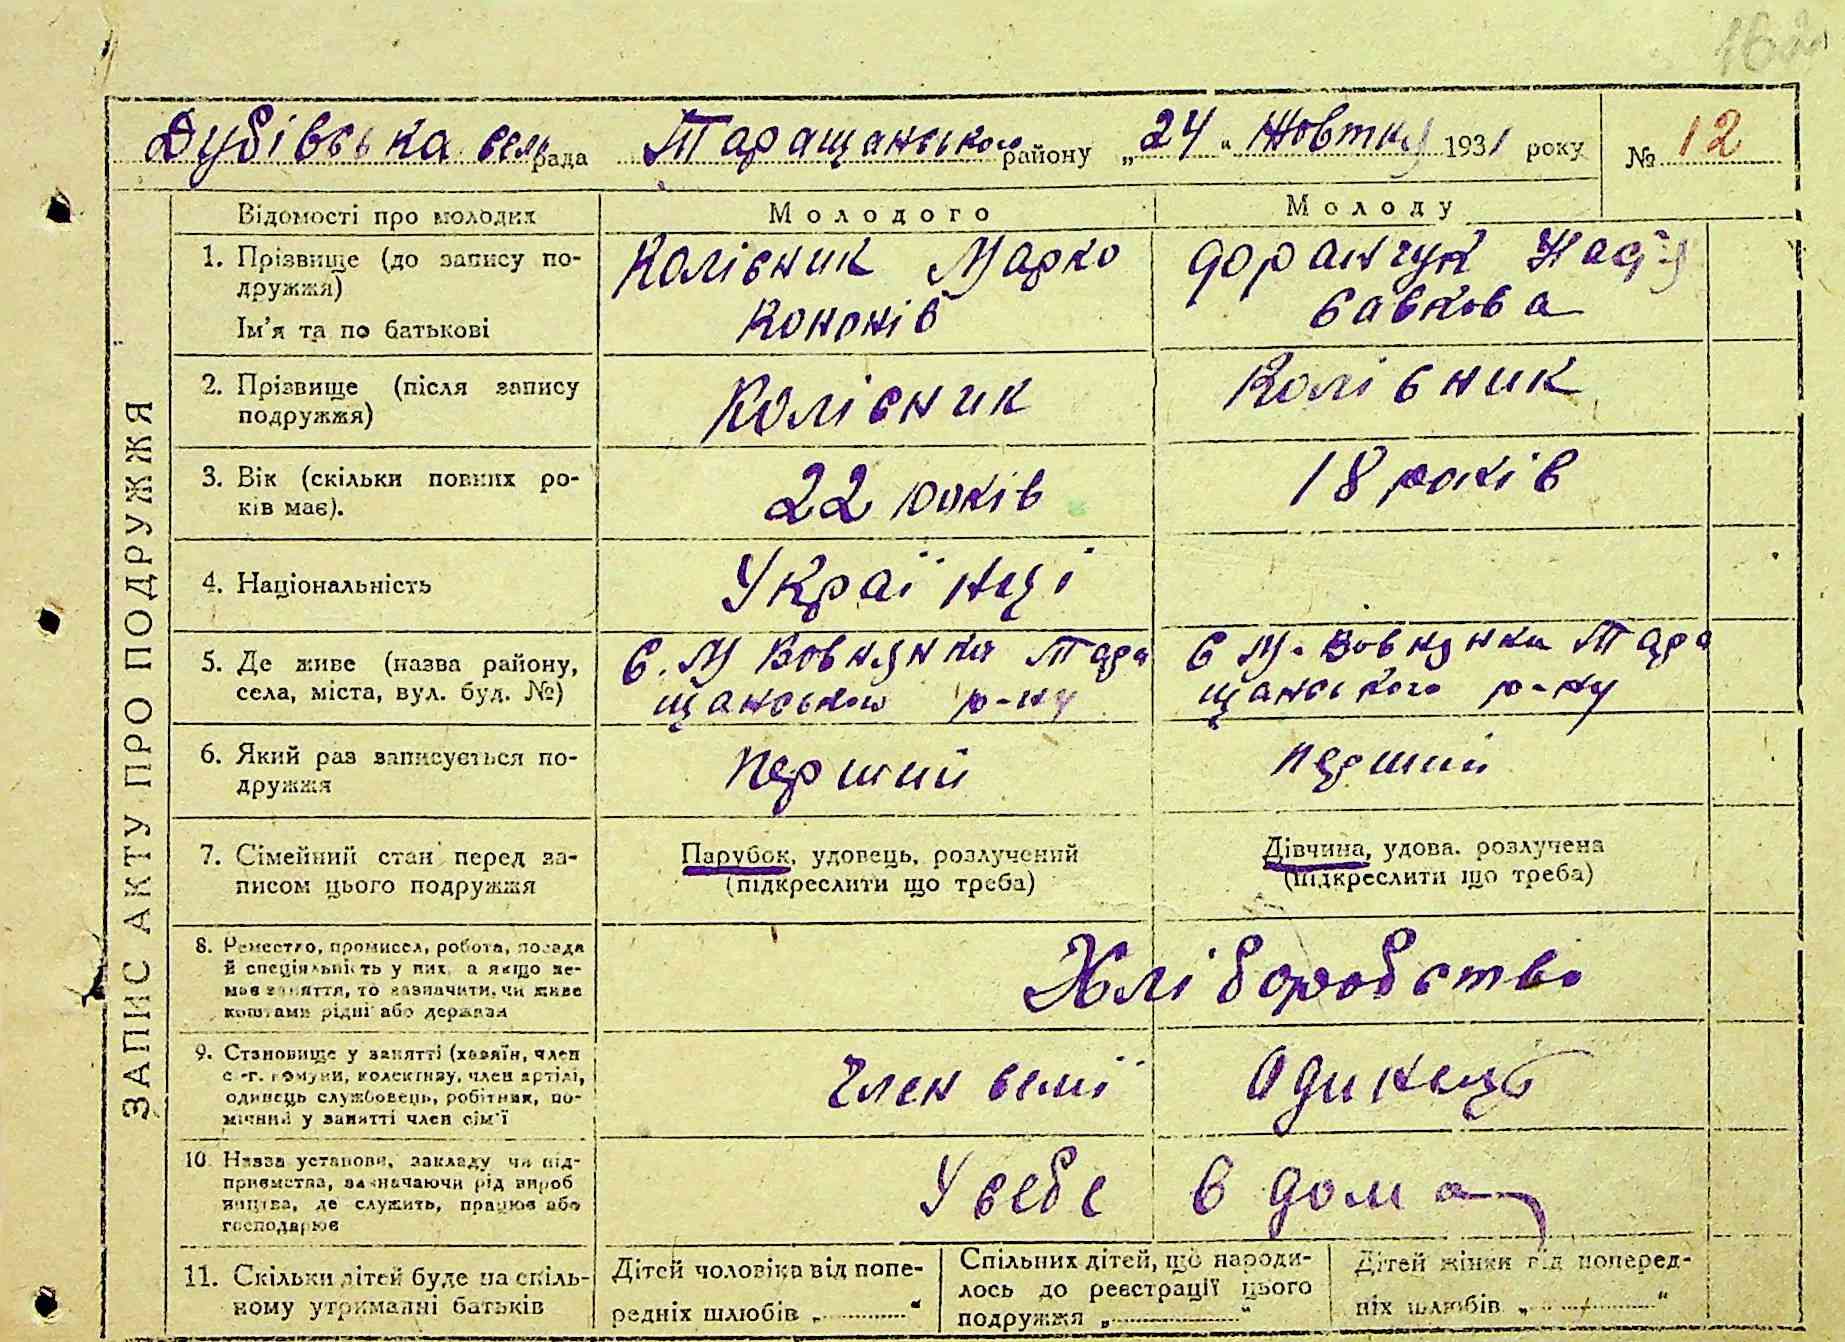 Дубівська сель рада Таращанського району „24" Жовтня 1931 року № 12
ЗАПИС АКТУ ПРО ПОДРУЖЖЯ
Відомості про молодих
Молодого
Молоду
1. Прізвище (до запису по-
дружжя)
Ім'я та по батькові
Колісник Марко
Кононів
Форанчук Надія
Савкова
2. Прізвище (після запису
подружжя)
Колісник
Колісник
3. Вік (скільки повних ро-
ків має).
22 років
18 років
4. Національність
Українці
5. Де живе (назва району,
села, міста, вул. буд. №)
С. М Вовнянка Тара
щанського р-ну
С М. Вовнянка Тара
щанського р-ну
6. Який раз записується по-
дружжя
перший
перший
7. Сімейний стан перед за-
писом цього подружжя
Парубок, удовець, розлучений
(підкреслити що треба)
Дівчина, удова. розлучена
(підкреслити що треба)
8. Ремество, промисел, робота, посада
й спеціяльність у них, а якщо не-
має заняття, то зазначити, чи живе
коштами рідні або держави
Хліборобство
9. Становище у занятті (хазяїн, член
с.-г. комуни, колективу, член артілі,
одинець службовець, робітник, по-
мічний у занятті член сім'ї
Член семї
Одинець
10. Назва установи, закладу чи під-
приємства, зазначаючи рід вироб
ництва, де служить, працює або
господарює
У себе в дома
11. Скільки дітей буде на спіль-
ному утриманні батьків
Дітей чоловіка від попе-
редніх шлюбів „ "
Спільних дітей, що народи-
лось до реєстрації цього
подружжя „ "
Дітей жінки від поперед-
ніх шлюбів „ "